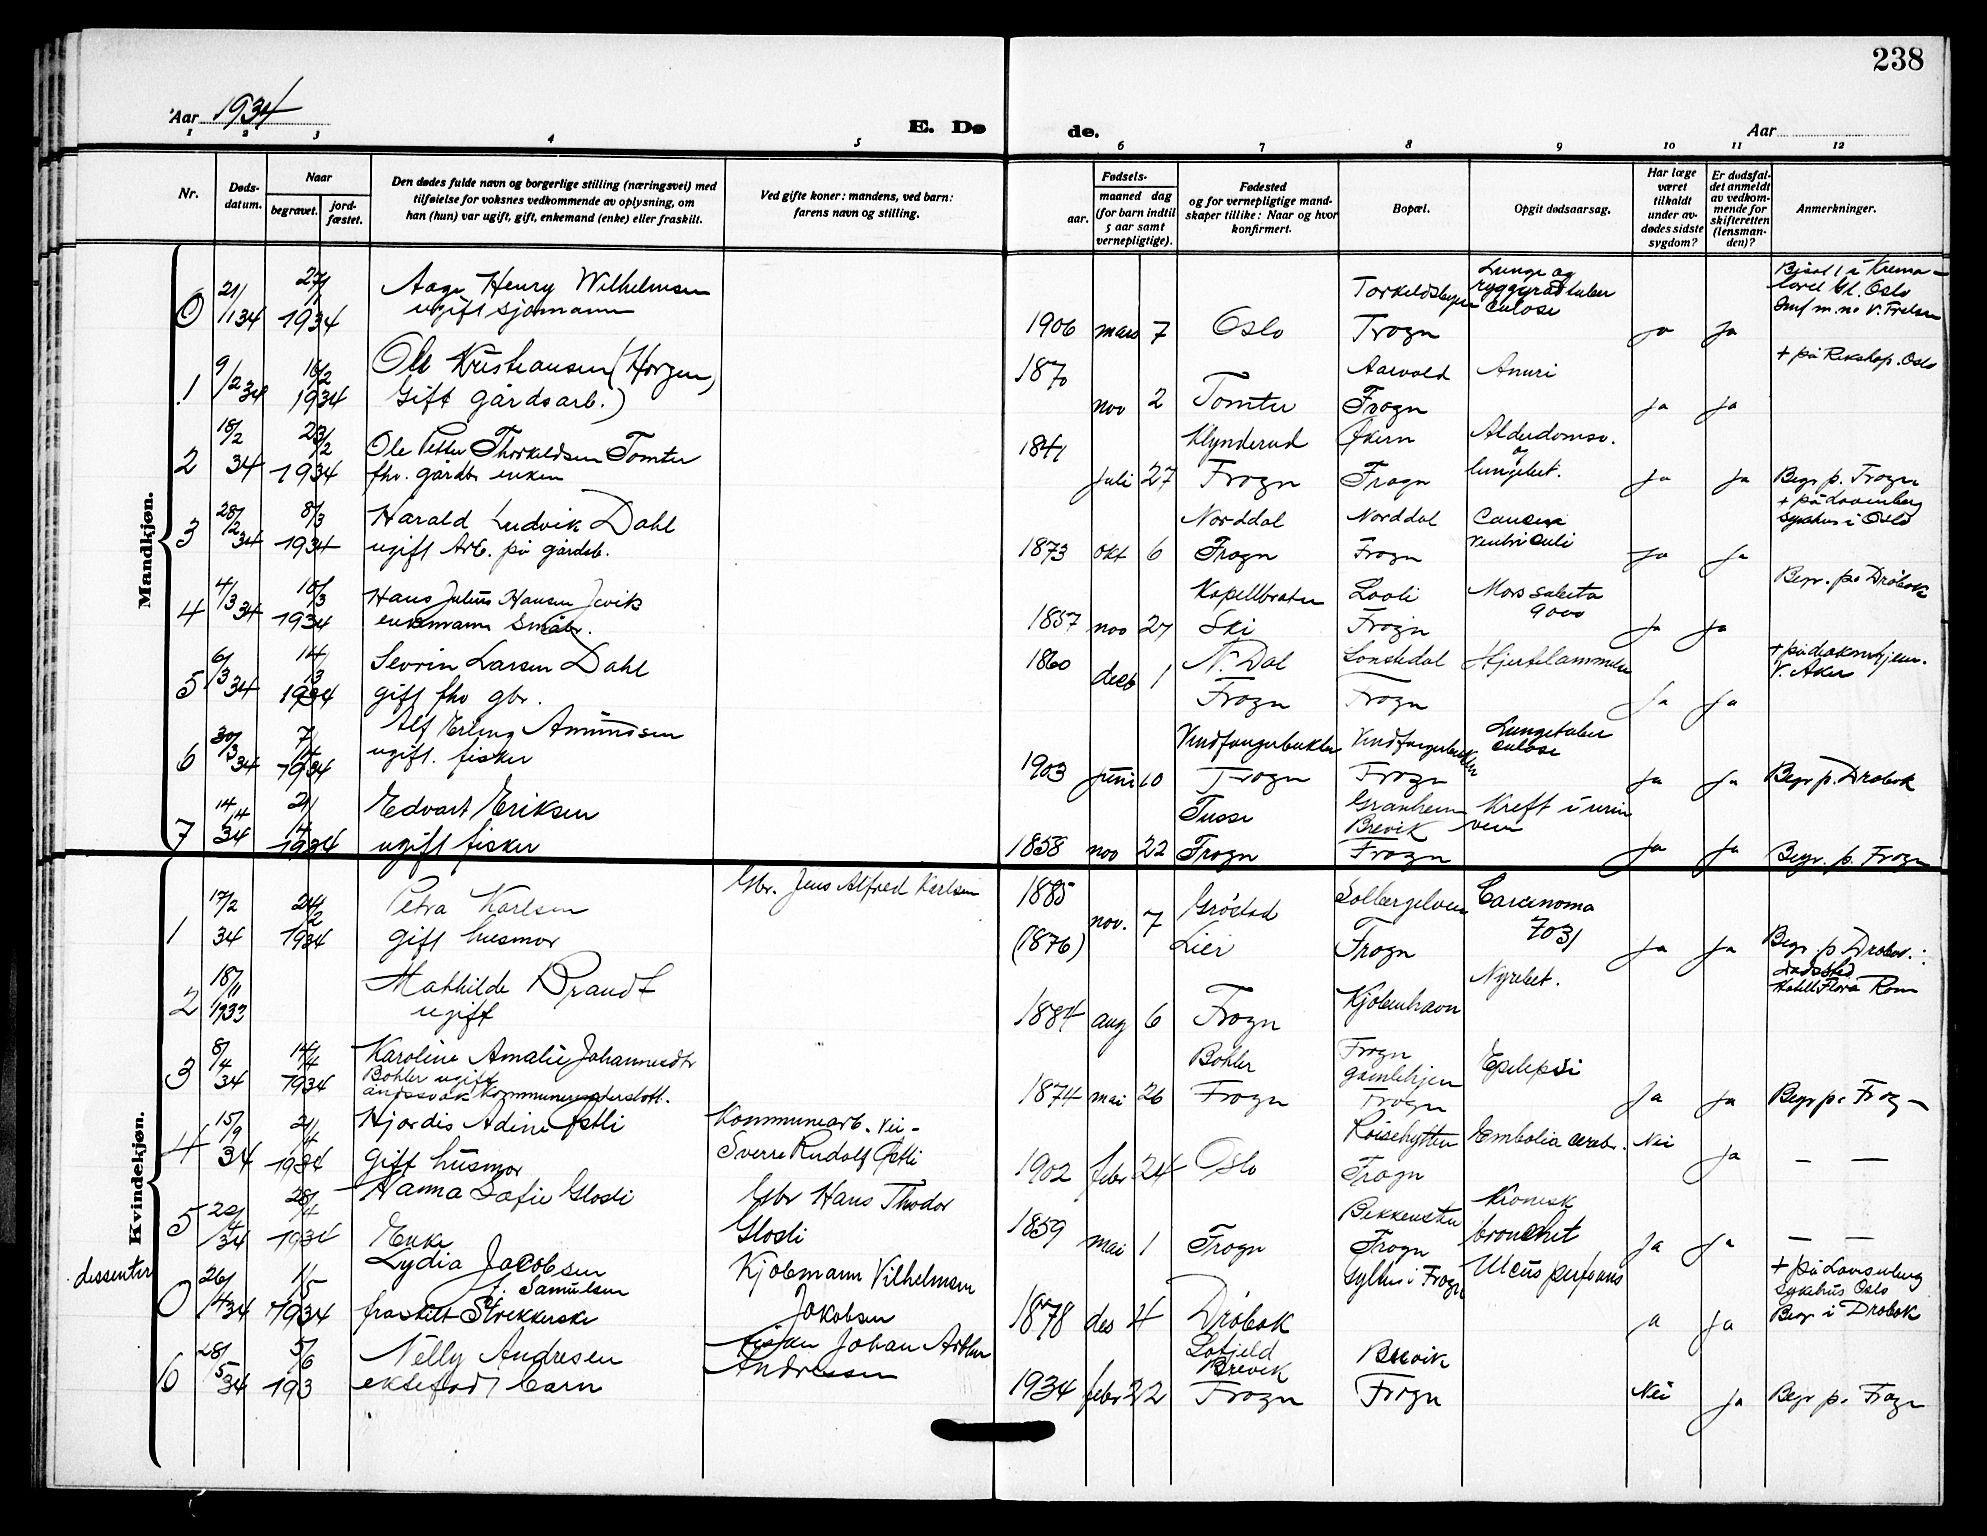 238
Aar 1934
E. Døde.
Aar
1 2 3 4 5 6 7 8 9 10 11 12
Nr.
Døds-
datum.
Naar
begravet.
jord-
fæstet.
Den dødes fulde navn og borgerlige stilling (næringsvei) med
tilføielse for voksnes vedkommende av oplysning, om
han (hun) var ugift, gift, enkemand (enke) eller fraskilt.
Ved gifte koner: mandens, ved barn:
farens navn og stilling.
Fødsels-
aar.
maaned dag
(for barn indtil
5 aar samt
vernepligtige).
Fødested
og for vernepligtige mand-
skaper tillike: Naar og hvor
konfirmert.
Bopæl.
Opgit dødsaarsag.
Har læge
været
tilkaldt
under av-
dødes sidste
sygdom?
Er dødsfal-
det anmeldt
av vedkom-
mende for
skifteretten
(lensman-
den)?
Anmerkninger.
Mandkjøn.
0 21/1 34 27/1 1934 Aage Henry Wilhelmsen
ugift sjømann
1906 mars 7 Oslo Frogn
Lunge og
ryggradtuber
culose
ja ja
1 9/2 34 16/2 1934 Ole Kristiansen (Horgen)
Gift gårdsarb.
1870 nov 2 Tomter Aarvold
Frogn
Anuri ja ja + på Rikshosp. Oslo
2 18/2 34 23/2 1934 Ole Petter Thorkildsen Tomter
fhv. gårdbr enkem
1841 juli 27 Klynderud
Frogn
Økern
Frogn
Alderdomssv.
og
lungebet.
ja ja Begr p. Frogn
3 28/2 34 8/3 1934 Harald Ludvik Dahl
ugift Arb. på gårdsb.
1873 okt 6 Norddal
Frogn
Norddal
Frogn
Cancer
ventriculi
ja ja + på Lovisenberg
sykehus i Oslo
4 4/3 34 10/3 1934 Hans Julius Hansen Jevik
enkemann småbr.
1857 nov 27 Kapellbråten
Ski
Looli
Frogn
Mors subita
9000
ja ja Begr. på Drøbak
5 6/3 34 14/3 1934 Sevrin Larsen Dahl
gift fhv gbr.
1860 decb 1 N. Dal
Frogn
Lonsdal
Frogn
Hjertelammelse
ja ja + på diakonhjem.
V. Aker
6 30/3 34 7/4 1934 Alf Erling Amundsen
ugift. fisker
1903 juni 10 Vindfangerbukten
Frogn
Vindfangerbukten
Frogn
Lungetuber
culose
ja ja Begr p. Drøbak
7 14/4 34 21/4 1934 Edvart Eriksen
ugift fisker
1858 nov 22 Tusse
Frogn
Granheim
Brevik
Frogn
Kreft i urin
veie
ja ja Begr. p. Frogn
Kvindekjøn.
1 17/2 34 24/2 1934 Petra Karlsen
gift husmor
Gbr. Jens Alfred Karlsen
1885
(1876)
nov. 7 Grøstad
Lier
Solbergelven
Frogn
Carcinoma
7031
ja ja Begr. p. Drøbak.
2 18/11 1933 Mathilde Brandt
ugift
1884 aug 6 Frogn Kjøbenhavn Nyrebet.
Dødssted
Hotell Flora Rom
3 8/4 34 14/4 1934 Karoline Amalie Johannesdtr
Bohler ugift
åndssvak kommuneunderstøtt.
1874 mai 26 Bohler
Frogn
Frogn
gamlehjem
Frogn
Epilepsi ja ja Begr p. Frogn
4 15/9 34 21/4 1934 Hjordis Adine Østli
gift husmor
Kommunearb. Vei-
Sverre Rudolf Østli
1902 febr 24 Oslo Loisehytten
Frogn
Embolia cereb. Nei ja — —
5 22/4 34 28/4 1934 Hanna Sofie Glosli
Enke
Gbr Hans Thodor
Glosli
1859 mai 1 Frogn Bekkensten
Frogn
Kronisk
bronchit
ja ja — —
dissenter
0 26/4 34 1/5 1934 Lydia Jacobsen
f. Samulsen
fraskilt Strikkerske
Kjøbmann Vilhelmsen
Jakobsen
1878 des 4 Drøbak Sylhus i Frogn Ulcus perforans
ja ja + på Lovisenberg
sykehus Oslo
Begr i Drøbak
6 28/5 34 5/6 193 Nelly Andresen
ektefødt barn
Fisker Johan Arthur
Andressen
1934 febr 22 Brevik
Frogn
Brevik
Frogn
Nei ja Begr p. Frogn